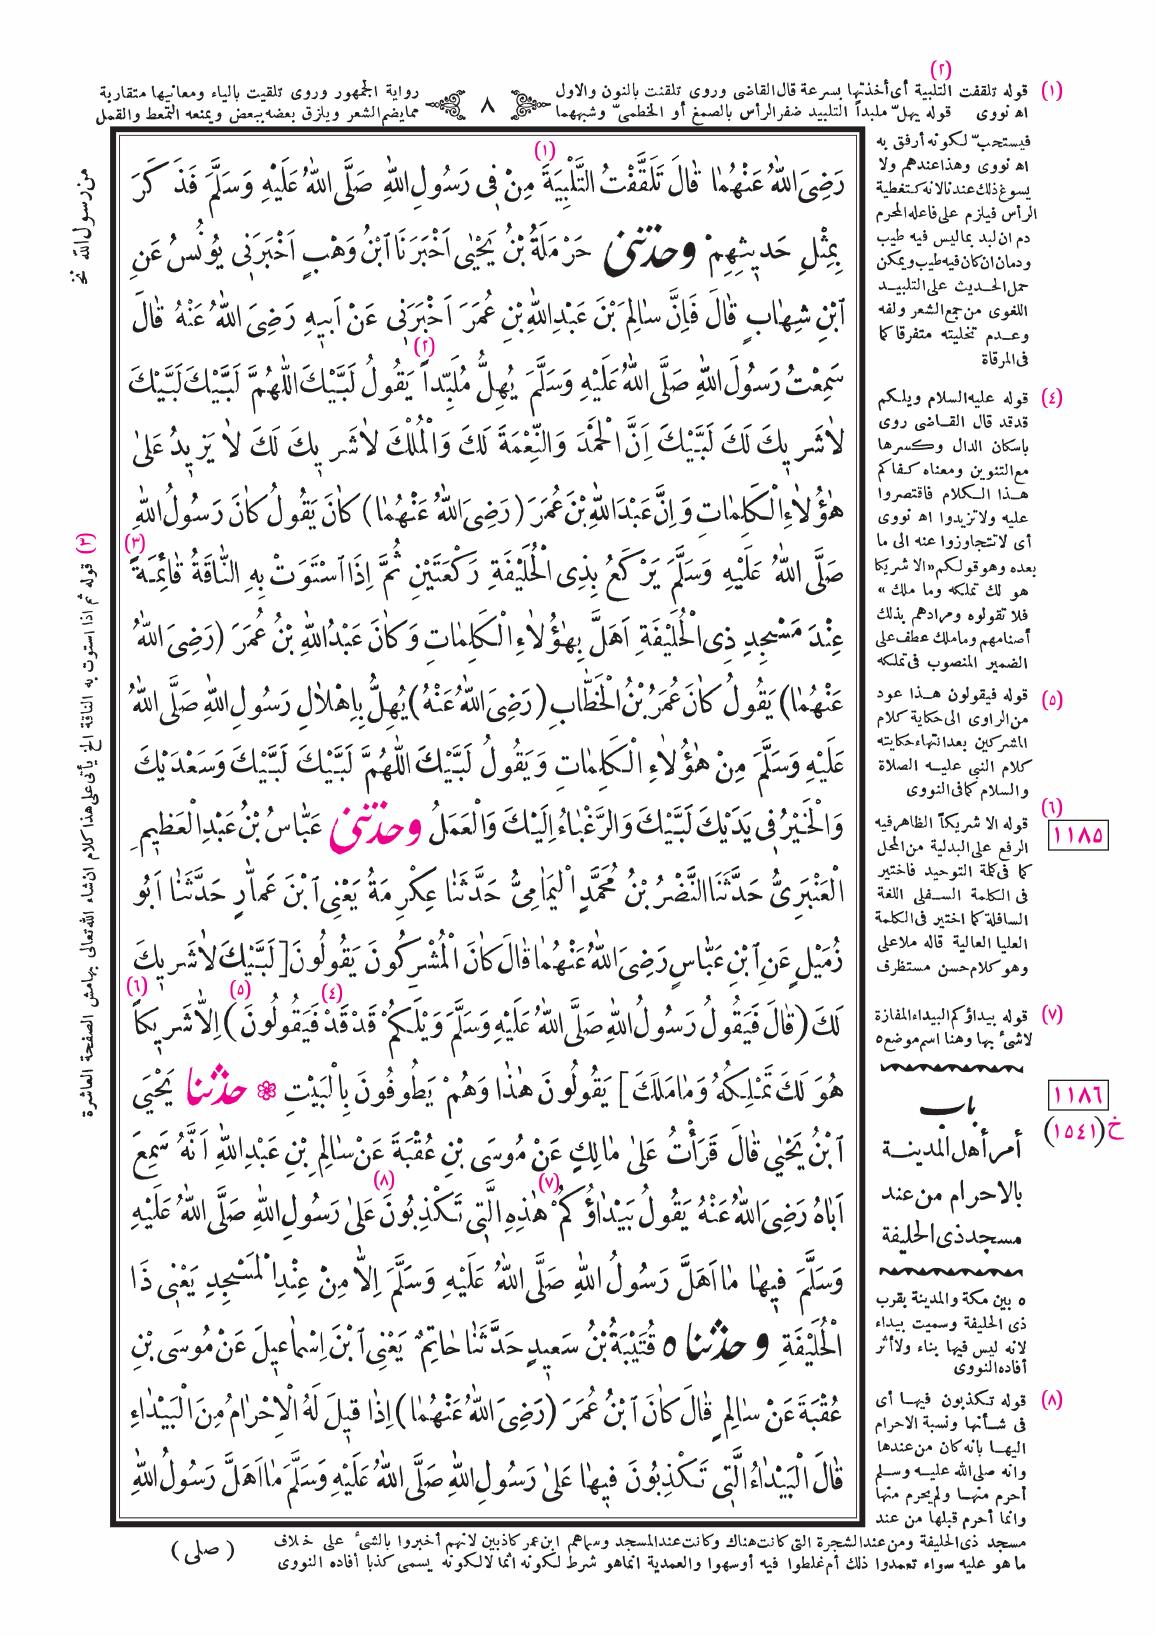 (٢)
(١) قوله تلقفت التلبية أى أخذتها بسرعة قال القاضى وروى تلقنت بالنون والاول
رواية الجمهور وروى تلقيت بالياء ومعانيها متقاربة
اه نووى قوله يهلّ ملبداً التلبيد ضفر الرأس بالصمغ أو الخطمىّ وشبههما
ممايضم الشعر ويلزق بعضه ببعض ويمنعه التمعط والقمل
٨
فيستحبّ لكونه أرفق به
اه نووى وهذا عندهم ولا
يسوغ ذلك عندنا لانه كتغطية
الرأس فيلزم على فاعله المحرم
دم ان لبد بماليس فيه طيب
ودمان ان كان فيه طيب ويمكن
حمل الحديث على التلبيد
اللغوى من جمع الشعر ولفه
وعدم تخليته متفرقا كما
فى المرقاة
(٤) قوله عليه السلام ويلكم
قدقد قال القاضى روى
باسكان الدال وكسرها
مع التنوين ومعناه كفاكم
هذا الكلام فاقتصروا
عليه ولا تزيدوا اه نووى
أى لا تتجاوزوا عنه الى ما
بعده وهو قولكم «الا شريكا
هو لك تملكه وما ملك»
فلا تقولوه ومرادهم بذلك
أصنامهم وماملك عطف على
الضمير المنصوب فى تملكه
(٥) قوله فيقولون هذا عود
من الراوى الى حكاية كلام
المشركين بعد انتهاء حكايته
كلام النبي عليه الصلاة
والسلام كما فى النووى
(٦) قوله الا شريكاً الظاهر فيه
الرفع على البدلية من المحل
كما فى كلمة التوحيد فاختير
فى الكلمة السفلى اللغة
السافلة كما اختير فى الكلمة
العليا العالية قاله ملاعلى
وهو كلام حسن مستظرف
١١٨٥
(٧) قوله بيداؤكم البيداء المفازة
لاشئ بها وهنا اسم موضع ٥
١١٨٦
خ (١٥٤١)
باب
أمر أهل المدينة
بالاحرام من عند
مسجد ذى الحليفة
٥ بين مكة والمدينة بقرب
ذى الحليفة وسميت بيداء
لانه ليس فيها بناء ولا أثر
أفاده النووى
(٨) قوله تكذبون فيها أى
فى شأنها ونسبة الاحرام
اليها بانه كان من عندها
وانه صلى الله عليه وسلم
أحرم منها ولم يحرم منها
وانما أحرم قبلها من عند
من رسول الله نخ
(٣) قوله ثم اذا استوت به الناقة الخ يأتى على هذا كلام ان شاء الله تعالى بهامش الصفحة العاشرة
(١)
رَضِىَ اللهُ عَنْهُمٰا قٰالَ تَلَقَّفْتُ التَّلْبِيَةَ مِنْ فِى رَسُولِ اللهِ صَلَّى اللهُ عَلَيْهِ وَسَلَّمَ فَذَكَرَ
بِمِثْلِ حَديثِهِمْ وحدثنى حَرْمَلَةُ بْنُ يَحْيٰى اَخْبَرَنَا ابْنُ وَهْبٍ اَخْبَرَنى يُونُسُ عَنِ
ابْنِ شِهٰابٍ قٰالَ فَاِنَّ سٰالِمَ بْنَ عَبْدِ اللهِ بْنِ عُمَرَ اَخْبَرَنى عَنْ اَبيهِ رَضِىَ اللهُ عَنْهُ قٰالَ
(٢)
سَمِعْتُ رَسُولَ اللهِ صَلَّى اللهُ عَلَيْهِ وَسَلَّمَ يُهِلُّ مُلَبِّداً يَقُولُ لَبَّيْكَ اللّٰهُمَّ لَبَّيْكَ لَبَّيْكَ
لاٰ شَريكَ لَكَ لَبَّيْكَ اِنَّ الْحَمْدَ وَالنِّعْمَةَ لَكَ وَالْمُلْكَ لاٰ شَريكَ لَكَ لاٰ يَزيدُ عَلىٰ
هٰؤُلاٰءِ الْكَلِمٰاتِ وَاِنَّ عَبْدَ اللهِ بْنَ عُمَرَ (رَضِىَ اللهُ عَنْهُمٰا) كٰانَ يَقُولُ كٰانَ رَسُولُ اللهِ
(٣)
صَلَّى اللهُ عَلَيْهِ وَسَلَّمَ يَرْكَعُ بِذِى الْحُلَيْفَةِ رَكْعَتَيْنِ ثُمَّ اِذَا اسْتَوَتْ بِهِ النّٰاقَةُ قٰائِمَةً
عِنْدَ مَسْجِدِ ذِى الْحُلَيْفَةِ اَهَلَّ بِهٰؤُلاٰءِ الْكَلِمٰاتِ وَكٰانَ عَبْدُ اللهِ بْنُ عُمَرَ (رَضِىَ اللهُ
عَنْهُمٰا) يَقُولُ كٰانَ عُمَرُ بْنُ الْخَطّٰابِ (رَضِىَ اللهُ عَنْهُ) يُهِلُّ بِاِهْلاٰلِ رَسُولِ اللهِ صَلَّى اللهُ
عَلَيْهِ وَسَلَّمَ مِنْ هٰؤُلاٰءِ الْكَلِمٰاتِ وَيَقُولُ لَبَّيْكَ اللّٰهُمَّ لَبَّيْكَ لَبَّيْكَ وَسَعْدَيْكَ
وَالْخَيْرُ فى يَدَيْكَ لَبَّيْكَ وَالرَّغْبٰاءُ اِلَيْكَ وَالْعَمَلُ وحدثنى عَبّٰاسُ بْنُ عَبْدِ الْعَظيمِ
الْعَنْبَرِىُّ حَدَّثَنَا النَّضْرُ بْنُ مُحَمَّدٍ الْيَمٰامِىُّ حَدَّثَنٰا عِكْرِمَةُ يَعْنِى ابْنَ عَمّٰارٍ حَدَّثَنٰا اَبُو
زُمَيْلٍ عَنِ ابْنِ عَبّٰاسٍ رَضِىَ اللهُ عَنْهُمٰا قٰالَ كٰانَ الْمُشْرِكُونَ يَقُولُونَ [لَبَّيْكَ لاٰ شَريكَ
(٤) (٥) (٦)
لَكَ (قٰالَ فَيَقُولُ رَسُولُ اللهِ صَلَّى اللهُ عَلَيْهِ وَسَلَّمَ وَيْلَكُمْ قَدْ قَدْ فَيَقُولُونَ) اِلاّٰ شَريكاً
هُوَ لَكَ تَمْلِكُهُ وَمٰا مَلَكَ] يَقُولُونَ هٰذٰا وَهُمْ يَطُوفُونَ بِالْبَيْتِ ❁ حدثنا يَحْيَى
ابْنُ يَحْيٰي قٰالَ قَرَأْتُ عَلىٰ مٰالِكٍ عَنْ مُوسَى بْنِ عُقْبَةَ عَنْ سٰالِمِ بْنِ عَبْدِ اللهِ اَنَّهُ سَمِعَ
(٧) (٨)
اَبٰاهُ رَضِىَ اللهُ عَنْهُ يَقُولُ بَيْدٰاؤُكُمْ هٰذِهِ الَّتى تَكْذِبُونَ عَلىٰ رَسُولِ اللهِ صَلَّى اللهُ عَلَيْهِ
وَسَلَّمَ فيهٰا مٰا اَهَلَّ رَسُولُ اللهِ صَلَّى اللهُ عَلَيْهِ وَسَلَّمَ اِلاّٰ مِنْ عِنْدِ الْمَسْجِدِ يَعْنى ذَا
الْحُلَيْفَةِ وحدثنا ٥ قُتَيْبَةُ بْنُ سَعيدٍ حَدَّثَنٰا حٰاتِمٌ يَعْنِى ابْنَ اِسْمٰاعيلَ عَنْ مُوسَى بْنِ
عُقْبَةَ عَنْ سٰالِمٍ قٰالَ كٰانَ ابْنُ عُمَرَ (رَضِىَ اللهُ عَنْهُمٰا) اِذٰا قيلَ لَهُ الْاِحْرٰامُ مِنَ الْبَيْدٰاءِ
قٰالَ الْبَيْدٰاءُ الَّتى تَكْذِبُونَ فيهٰا عَلىٰ رَسُولِ اللهِ صَلَّى اللهُ عَلَيْهِ وَسَلَّمَ مٰا اَهَلَّ رَسُولُ اللهِ
مسجد ذى الحليفة ومن عند الشجرة التى كانت هناك وكانت عند المسجد وسماهم ابن عمر كاذبين لانهم أخبروا بالشئ على خلاف
ما هو عليه سواء تعمدوا ذلك أم غلطوا فيه أوسهوا والعمدية انماهو شرط لكونه اثما لا لكونه يسمى كذبا أفاده النووى
(صلى)